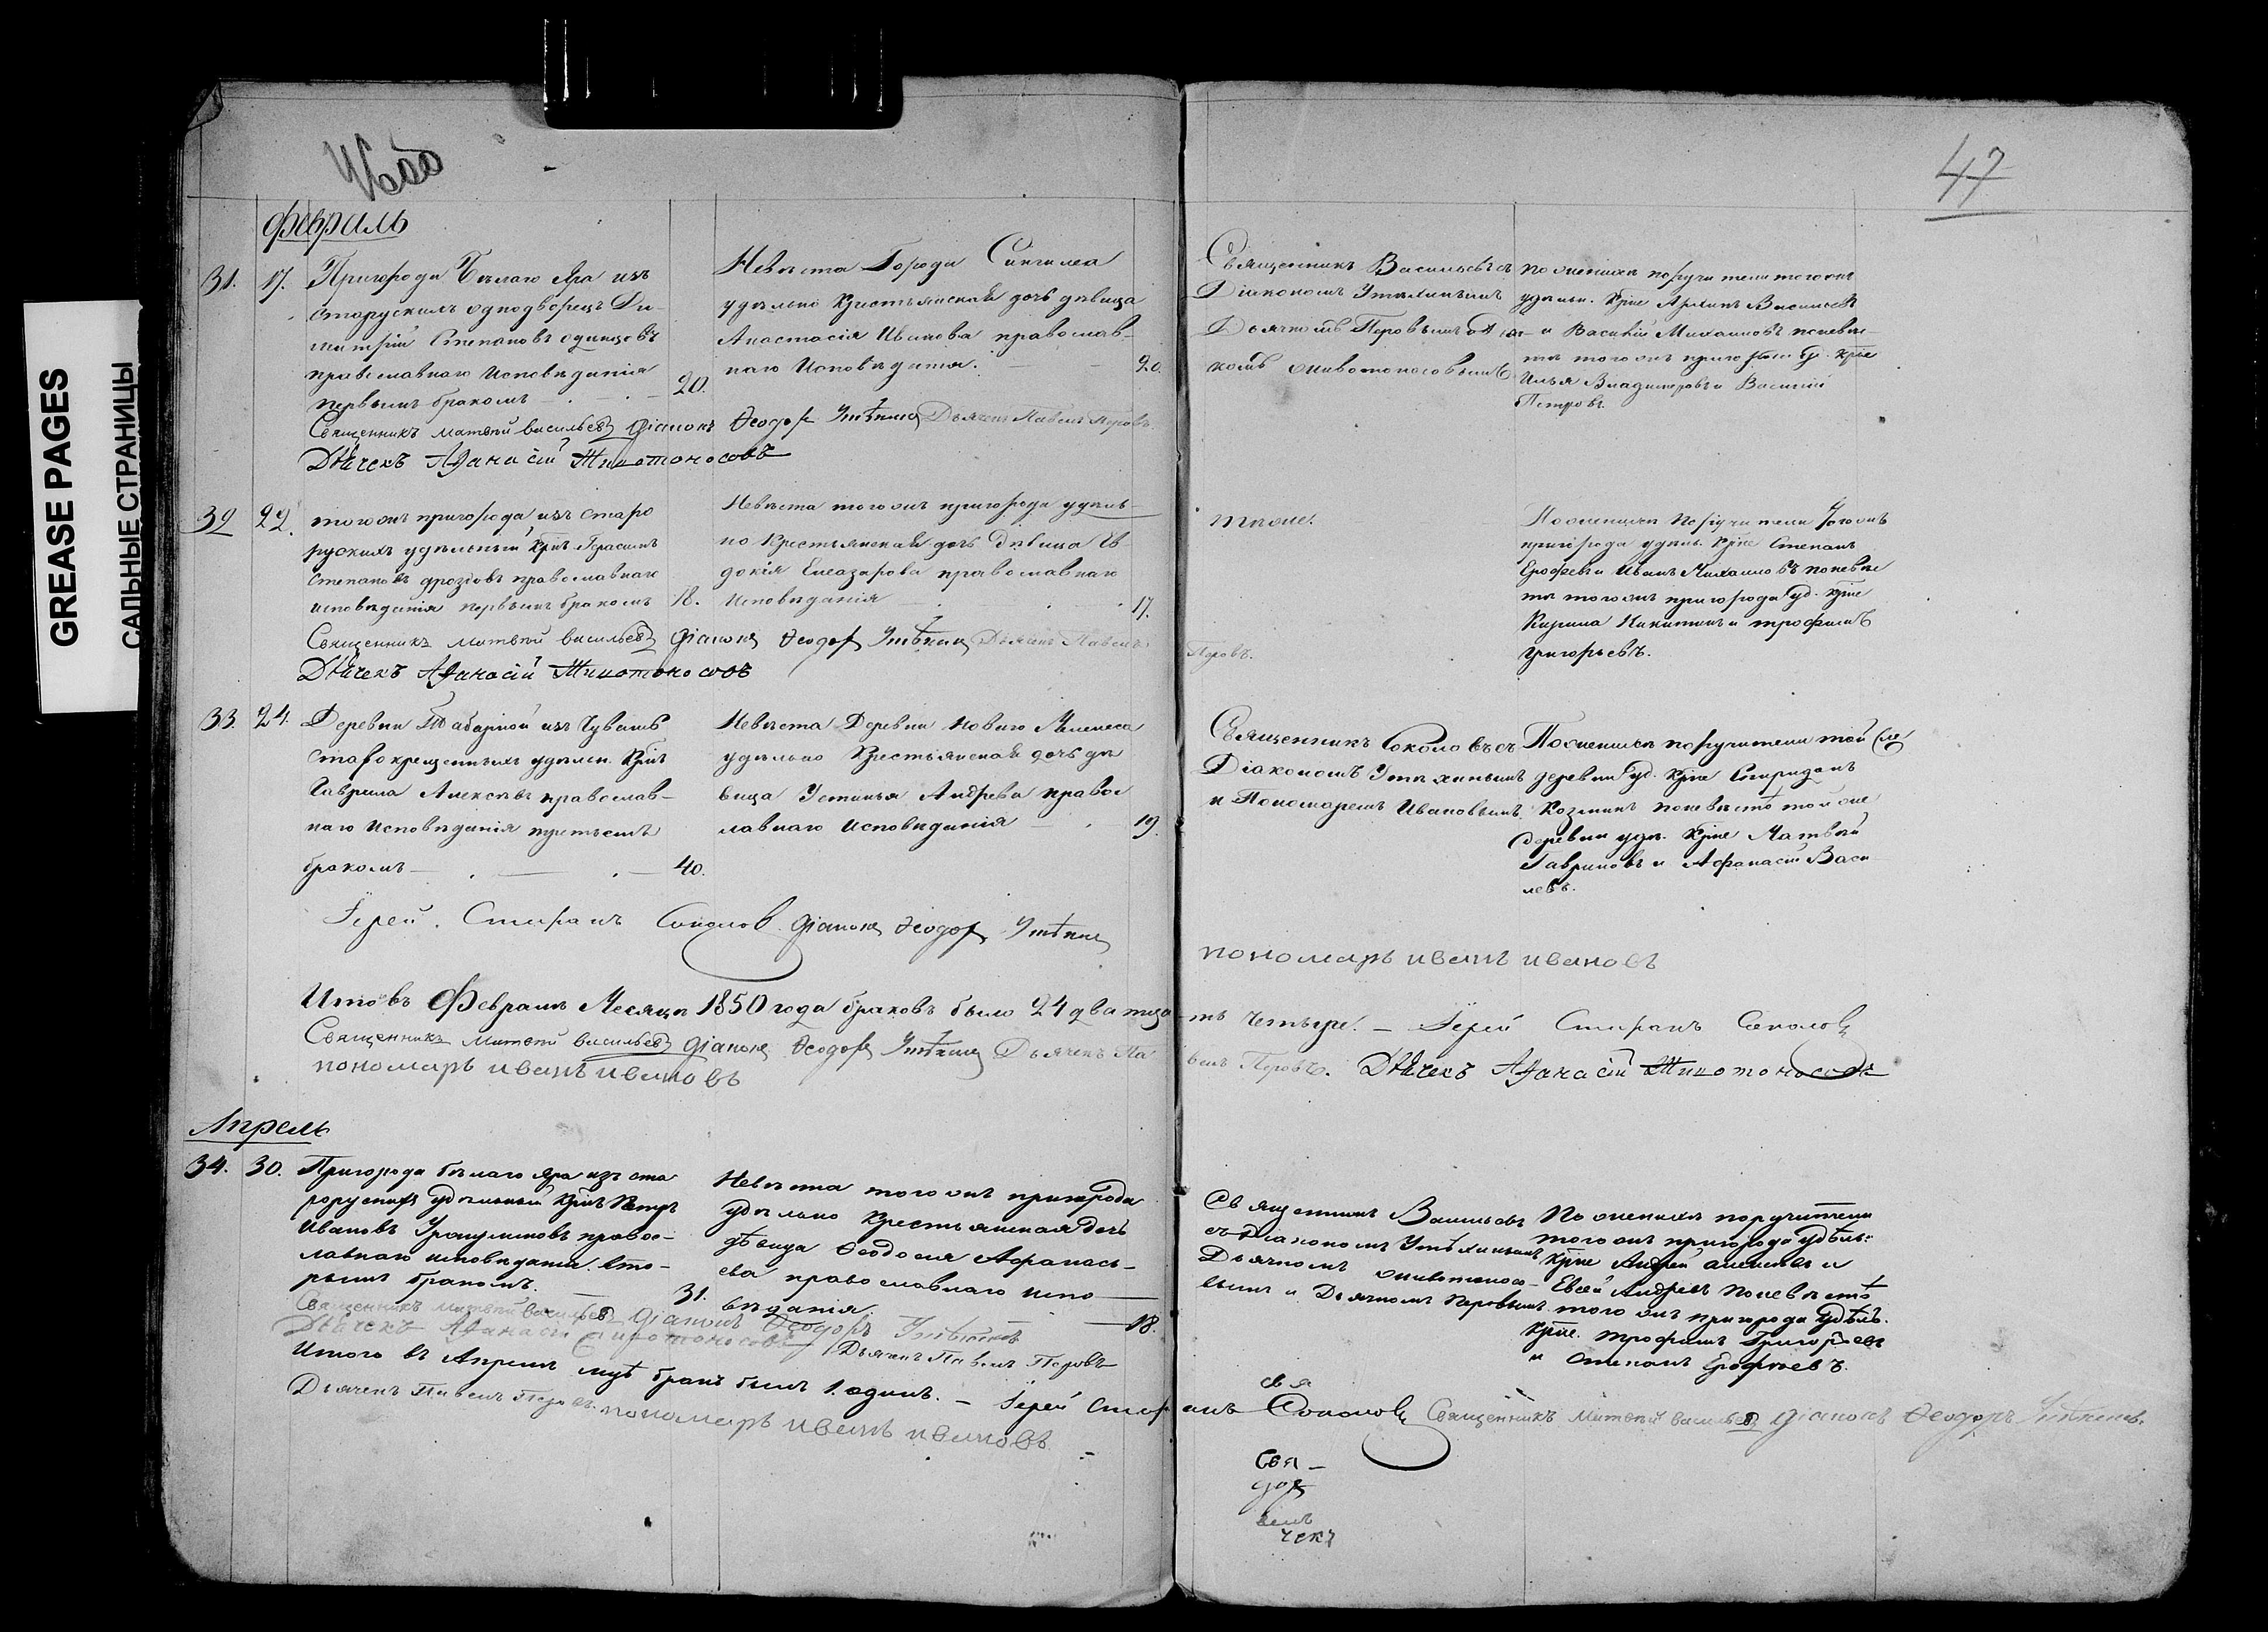 GREASE PAGES
САЛЬНЫЕ СТРАНИЦЫ
47
февраль
31. 17. Пригорода Бѣлаго Яра изъ
старускихъ однодворецъ Ди-
митрій Степановъ одинцовъ
православнаго Исповѣданія
первымъ бракомъ 20.
Невѣста Города Сингилея
удѣльно крестьянская дочь дѣвица
Анастасія Иванова православ-
наго Исповѣданія. 20.
Священникъ Васильевъ съ
Діакономъ Утѣхинымъ
Дьячкомъ Перовымъ и Дья-
комъ Животоносовымъ
по женихѣ поручители тогожъ
удѣльн. Крне Архипъ Васильевъ
и Василій Михаиловъ поневѣс-
тѣ тогожъ пригорода уд. Крне
Илья Владимеровъ и Василій
Петровъ.
Священникъ матвѣй васильевъ Діаконъ Ѳеодоръ Утѣхинъ Дьячекъ Павелъ Перовъ.
Дьячекъ Аѳанасій Животоносовъ
32 22. тогожъ пригорода изъ старо
рускихъ удѣльный Крнъ Герасимъ
Степановъ дроздовъ православнаго
исповѣданія первымъ бракомъ 18.
Невѣста тогожъ пригорода удѣль-
но Крестьянская дочь Дѣвица Ев
докія Елеазарова православнаго
Исповѣданія 17.
тѣже.
По женихѣ Поручители тогожъ
пригорода удѣль. Крне Степанъ
Ерофеевъ и Иванъ Михаиловъ поневѣс
тѣ тогожъ пригорода уд. Крне
Кирила Никитинъ и трофимъ
григорьевъ.
Священникъ матвѣй васильевъ Діаконъ Ѳеодоръ Утѣхинъ Дьячекъ Павелъ Перовъ.
Дьячекъ Аѳанасій Животоносовъ
33. 24. Деревни Табарной изъ Чувашъ
старокрещенныхъ удѣльн. Крнъ
Гаврила Алексѣевъ православ-
наго Исповѣданія третьемъ
бракомъ 40.
Невѣста Деревни Новаго Мелекеса
удѣльно Крестьянская дочь дѣ
вица Устинья Андреева правос
лавнаго Исповѣданія 19.
Священникъ Соколовъ съ
Діакономъ Утѣхинымъ
и Пономаремъ Ивановымъ.
По женихѣ поручители той же
деревни уд. Крне Спиридонъ
Козминъ поневѣстѣ той же
деревни удѣл. Крне Матвѣй
Гавриловъ и Афанасій Васи
левъ.
Іерей Стефанъ Соколовъ Діаконъ Ѳеодоръ Утѣхинъ
пономарь иванъ ивановъ
Итого въ Февралѣ Месяцѣ 1850 года браковъ было 24 двадцать четыре. – Іерей Стефанъ Соколовъ
Священникъ Матвѣй васильевъ Діаконъ Ѳеодоръ Утѣхинъ Дьячекъ Павелъ Перовъ. Дьячекъ Аѳанасій Животоносовъ
пономарь иванъ ивановъ
Апрель
34. 30. Пригорода бѣлаго Яра изъ ста
рорускихъ удѣльный Крнъ Петръ
Ивановъ православ-
лавнаго исповѣданія. вто-
рымъ бракомъ. 31.
Невѣста тогожъ пригорода
удѣльно Крестьянская Дочь
дѣвица Ѳеодосія Афанась-
ева православнаго испо-
вѣданія. 18.
Священникъ Васильевъ
съ Діакономъ Утѣхинымъ
Дьячкомъ Животоносо-
вымъ и Дьячкомъ Перовымъ
По женихѣ поручители
тогожъ пригорода Удѣль:
Крне Андрей алексѣевъ и
Евсей Андреевъ Поневѣстѣ
того жъ пригорода Удѣль.
Крне. трофимъ Григорьевъ
и степанъ Ерофѣевъ.
Священникъ матвѣй васильевъ Діаконъ Ѳеодоръ Утѣхинъ
Дьячекъ Аѳанасій Животоносовъ Дьячекъ Павелъ Перовъ
Итого въ Апрелѣ мцѣ бракъ былъ 1. одинъ. – Іерей Стефанъ Соколовъ Священникъ Матвѣй васильевъ Діаконъ Ѳеодоръ Утѣхинъ.
Дьячекъ Павелъ Перовъ. пономарь иванъ ивановъ
свя
Свя-
дор
велъ
чекъ